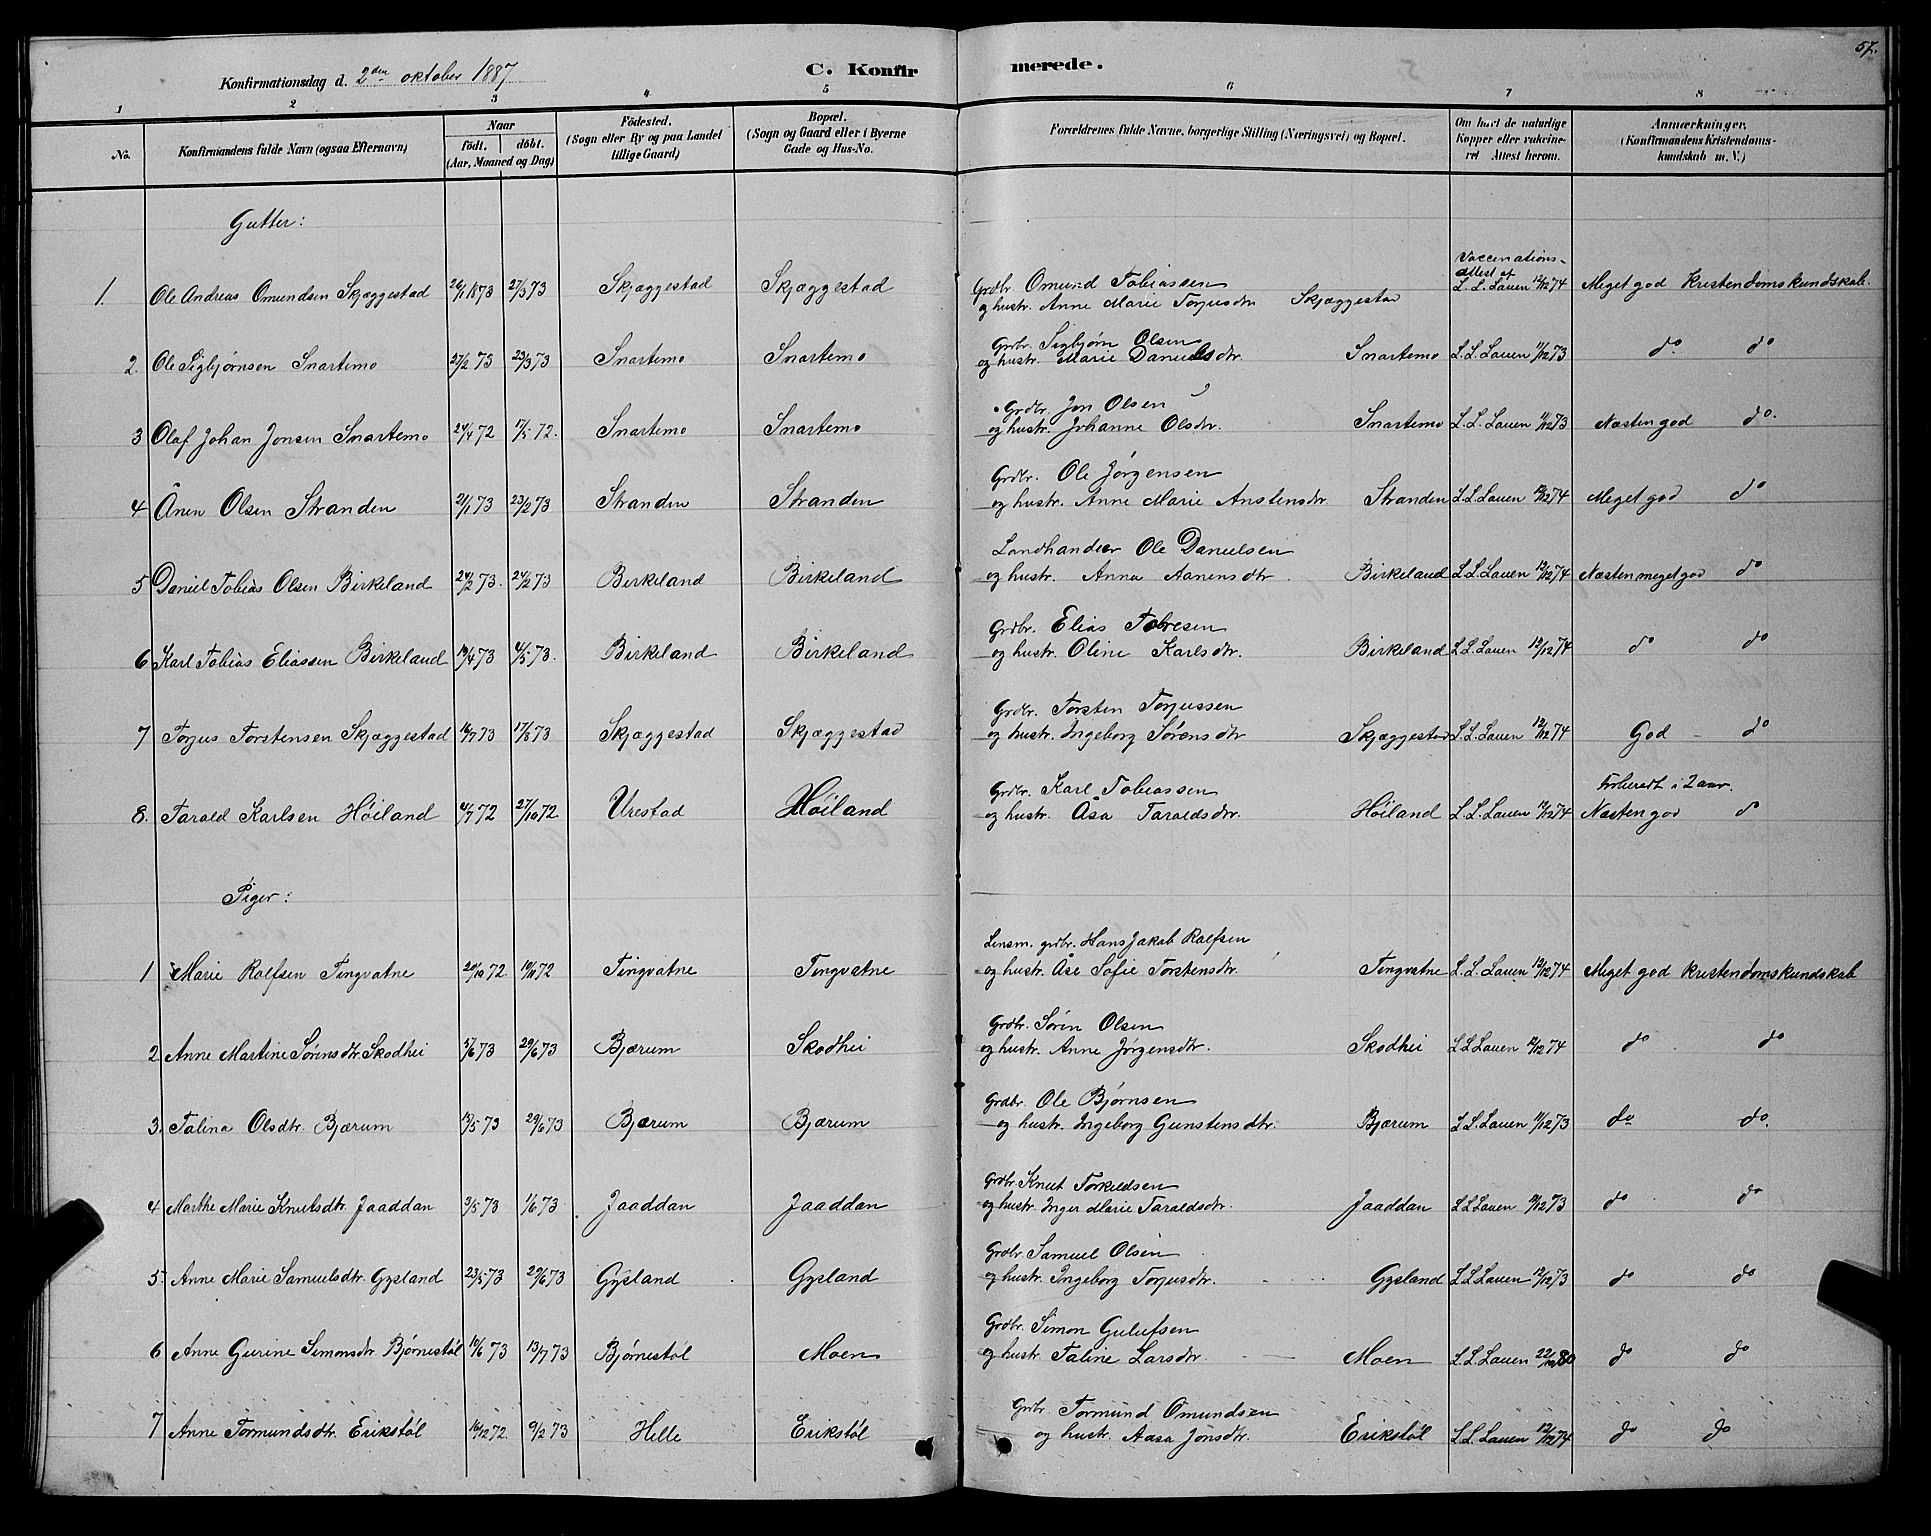 57.
Konfirmationsdag d. 2den oktober 1887
C. Konfirmerede.
1 2 3 4 5 6 7 8
No.
Konfirmandens fulde Navn (ogsaa Efternavn)
Naar
født. døbt.
(Aar, Maaned og Dag)
Fødested.
(Sogn eller By og paa Landet
tillige Gaard)
Bopæl.
(Sogn og Gaard eller i Byerne
Gade og Hus-No.
Forældrenes fulde Navne, borgerlige Stilling (Næringsvei) og Bopæl.
Om havt de naturlige
Kopper eller vakcine-
ret Attest herom.
Anmærkninger.
(Konfirmandens Kristendoms-
kundskab m. V.)
Gutter:
Vaccinations-
attest af
1. Ole Andreas Omundsen Skjæggestad 26/1 1873 27/3 73 Skjæggestad Skjæggestad Grdbr. Omund Tobiassen
og hustr. Anne Marie Torjusdtr Skjæggestad L. L. Lauen 12/12 74 Meget god Kristendomskundskab.
2. Ole Sigbjørnsen Snartemo 27/2 73 23/3 73 Snartemo Snartemo Grdbr. Sigbjørn Olsen
og hustr. Marie Danielsdtr. Snartemo L. L. Lauen 11/12 73 do do
3 Olaf Johan Jonsen Snartemo 24/4 72 17/5 72. Snartemo Snartemo Grdbr. Jon Olsen
og hustr. Johanne Olsdtr. Snartemo L. L. Lauen 11/12 73 Næsten god do.
4 Ånen Olsen Stranden 21/1 73 23/2 73 Stranden Stranden Grdbr. Ole Jørgensen
og hustr. Anne Marie Anstensdtr Stranden L. L. Lauen 12/12 74 Meget god do
5 Daniel Tobias Olsen Birkeland 24/2 73. 24/2 73 Birkeland Birkeland Landhandler Ole Danielsen
og hustr. Anna Aanensdtr Birkeland L. L. Lauen 12/12 74 Næsten meget god do
6 Karl Tobias Eliassen Birkeland 19/4 73 4/5 73. Birkeland Birkeland Grdbr. Elias Tobresen
og hustr. Oline Karlsdtr. Birkeland L. L. Lauen 12/12 74 do do
7 Torjus Torstensen Skjæggestad 16/7 73 17/8 73 Skjæggestad Skjæggestad Grdbr. Torsten Torjussen
og hustr. Ingeborg Sørensdtr Skjæggestad L. L. Lauen 12/12 74 God - do
8. Tarald Karlsen Höiland 4/7 72 27/10 72 Urestad Höiland Grdbr. Karl Tobiassen
og hustr. Åsa Taraldsdtr. Höiland L. L. Lauen 12/12 74 Forberedt i 2 aar.
Næsten god do
Piger:
1 Marie Rolfsen Tingvatne 20/10 72 10/11 72 Tingvatne Tingvatne Lensm. grdbr. Hans Jakob Rolfsen
og hustr. Åse Sofie Torstensdtr. Tingvatne L. L. Lauen 12/12 74 Meget god kristendomskundskab
2 Anne Martine Sørensdtr. Skodhei 5/6 73 29/6 73 Bjærum Skodhei Grdbr. Sören Olsen
og hustr. Anne Jørgensdtr. Skodhei L L Lauen 12/12 74 do do
3. Talina Olsdtr. Bjærum 13/5 73 29/6 73 Bjærum Bjærum Grdbr. Ole Bjørnsen
og hustr. Ingeborg Gunstensdtr. Bjærum L. L. Lauen 11/12 73 do do.
4 Marthe Marie Knutsdtr. Jaaddan 3/5 73 1/6 73 Jaaddan Jaaddan Grdbr Knut Torkildsen
og hustr. Inger Marie Taraldsdtr. Jaaddan L L Lauen 11/12 73 do do
5. Anne Marie Samuelsdtr. Gysland 23/5 73 29/6 73 Gysland Gysland Grdbr. Samuel Olsen
og hustr. Ingeborg Torjusdtr. Gysland L. L. Lauen 12/12 73 do do
6 Anne Gurine Simonsdtr Bjørnestøl 10/6 73 13/7 73 Bjørnestøl Moen Grdbr. Simon Gulufsen
og hustr. Taline Larsdtr. Moen L. L. Lauen 22/10 80 do do
7 Anne Tormundsdtr. Erikstøl 16/12 72 9/2 73 Helle Erikstøl Grdbr. Tormund Omundsen
og hustr. Aasa Jonsdtr. Erikstøl L. L. Lauen 12/12 74 do do